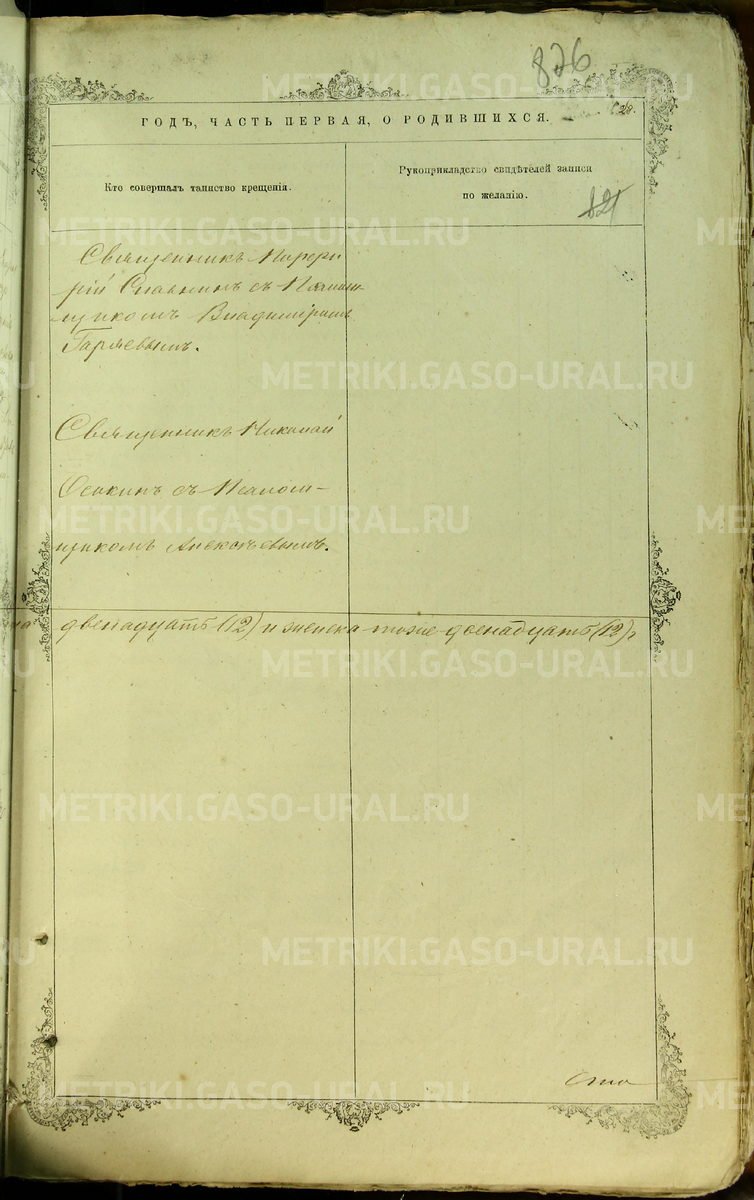 826
ГОДЪ, ЧАСТЬ ПЕРВАЯ, О РОДИВШИХСЯ.
Кто совершалъ таинство крещенія.
Рукоприкладство свидѣтелей записи
по желанію.
Священникъ Порфи
рій Славнинъ съ Псалом
щикомъ Владиміромъ
Гаряевымъ.
Священникъ Николай
Осокинъ съ Псалом-
щикомъ Алексѣевымъ.
двенадцать (12) и женска тоже двенадцать (12),
METRIKI.GASO-URAL.RU